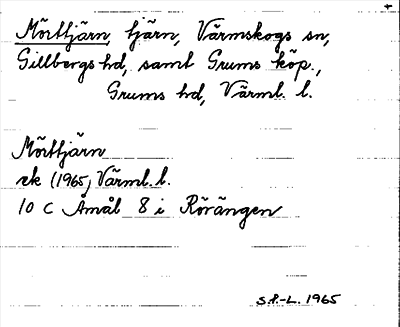 Mörttjärn, tjärn, Värmskogs sn,
Gillbergs hd, samt Grums köp.,
Grums hd, Värml. l.
Mörttjärn
ek (1965) Värml. l.
10 C Åmål 8 i Rörängen
S.P.-L. 1965